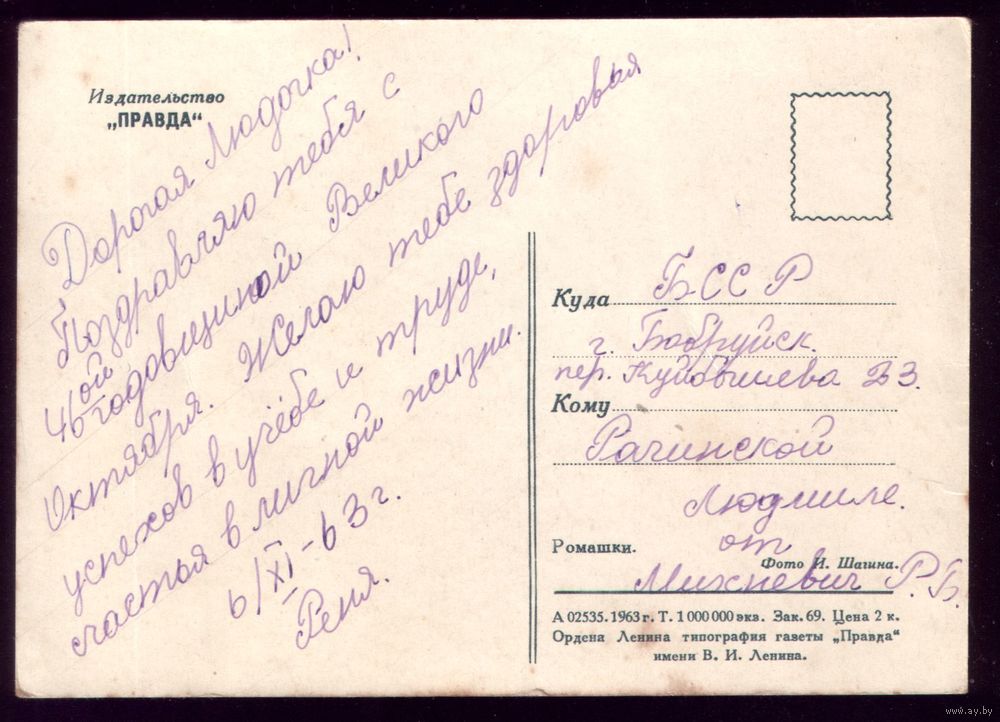 Издательство
„ПРАВДА“
Дорогая Людочка!
Поздравляю тебя с
46ой годовщиной Великого
Октября. Желаю тебе здоровья
успехов в учёбе и труде,
счастья в личной жизни.
6/XI-63г.
Реня.
Куда БССР
г. Бобруйск.
пер. Куйбышева 23.
Кому
Рачинской
Людмиле.
от
Михневич Р.Б.
Ромашки.
Фото И. Шагина.
А 02535. 1963 г. Т. 1 000 000 экз. Зак. 69. Цена 2 к.
Ордена Ленина типография газеты „Правда“
имени В. И. Ленина.
www.ay.by